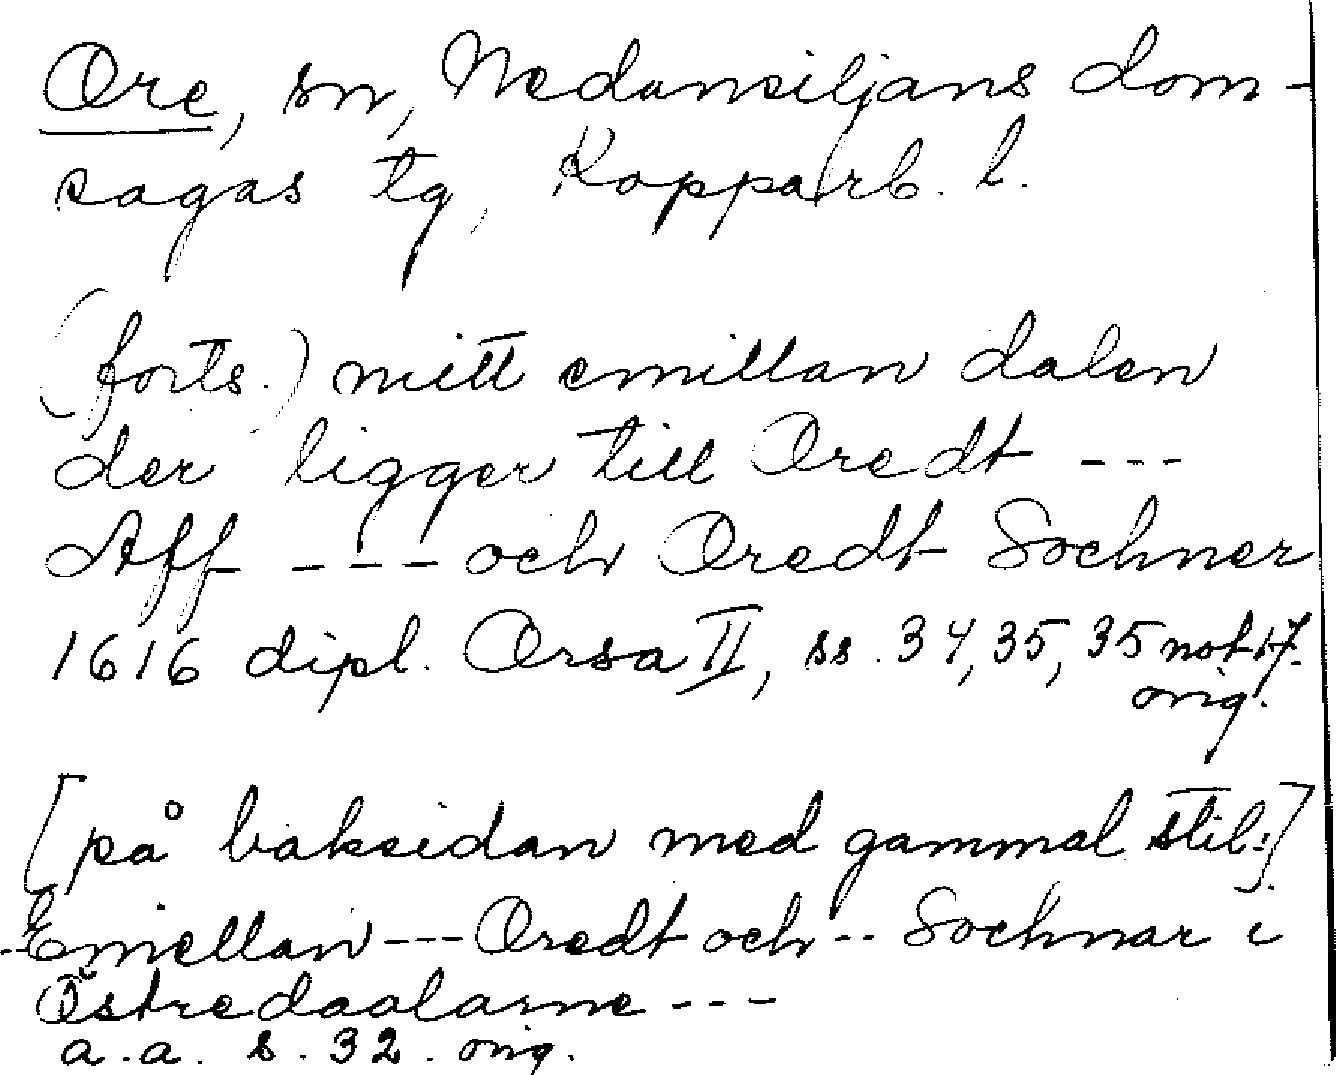 Ore, sn, Nedansiljans dom-
sagas tg, Kopparb. l.
(forts.) mitt emillan dalen
der ligger till Oredt ---
Aff --- och Oredt Sochner
1616 dipl. Orsa II, ss. 34, 35, 35 not 17.
orig.
[på baksidan med gammal stil:]
--Emellan --- Oredt och -- Sochnar i
Östredaalarne ---
a.a. s. 32. orig.